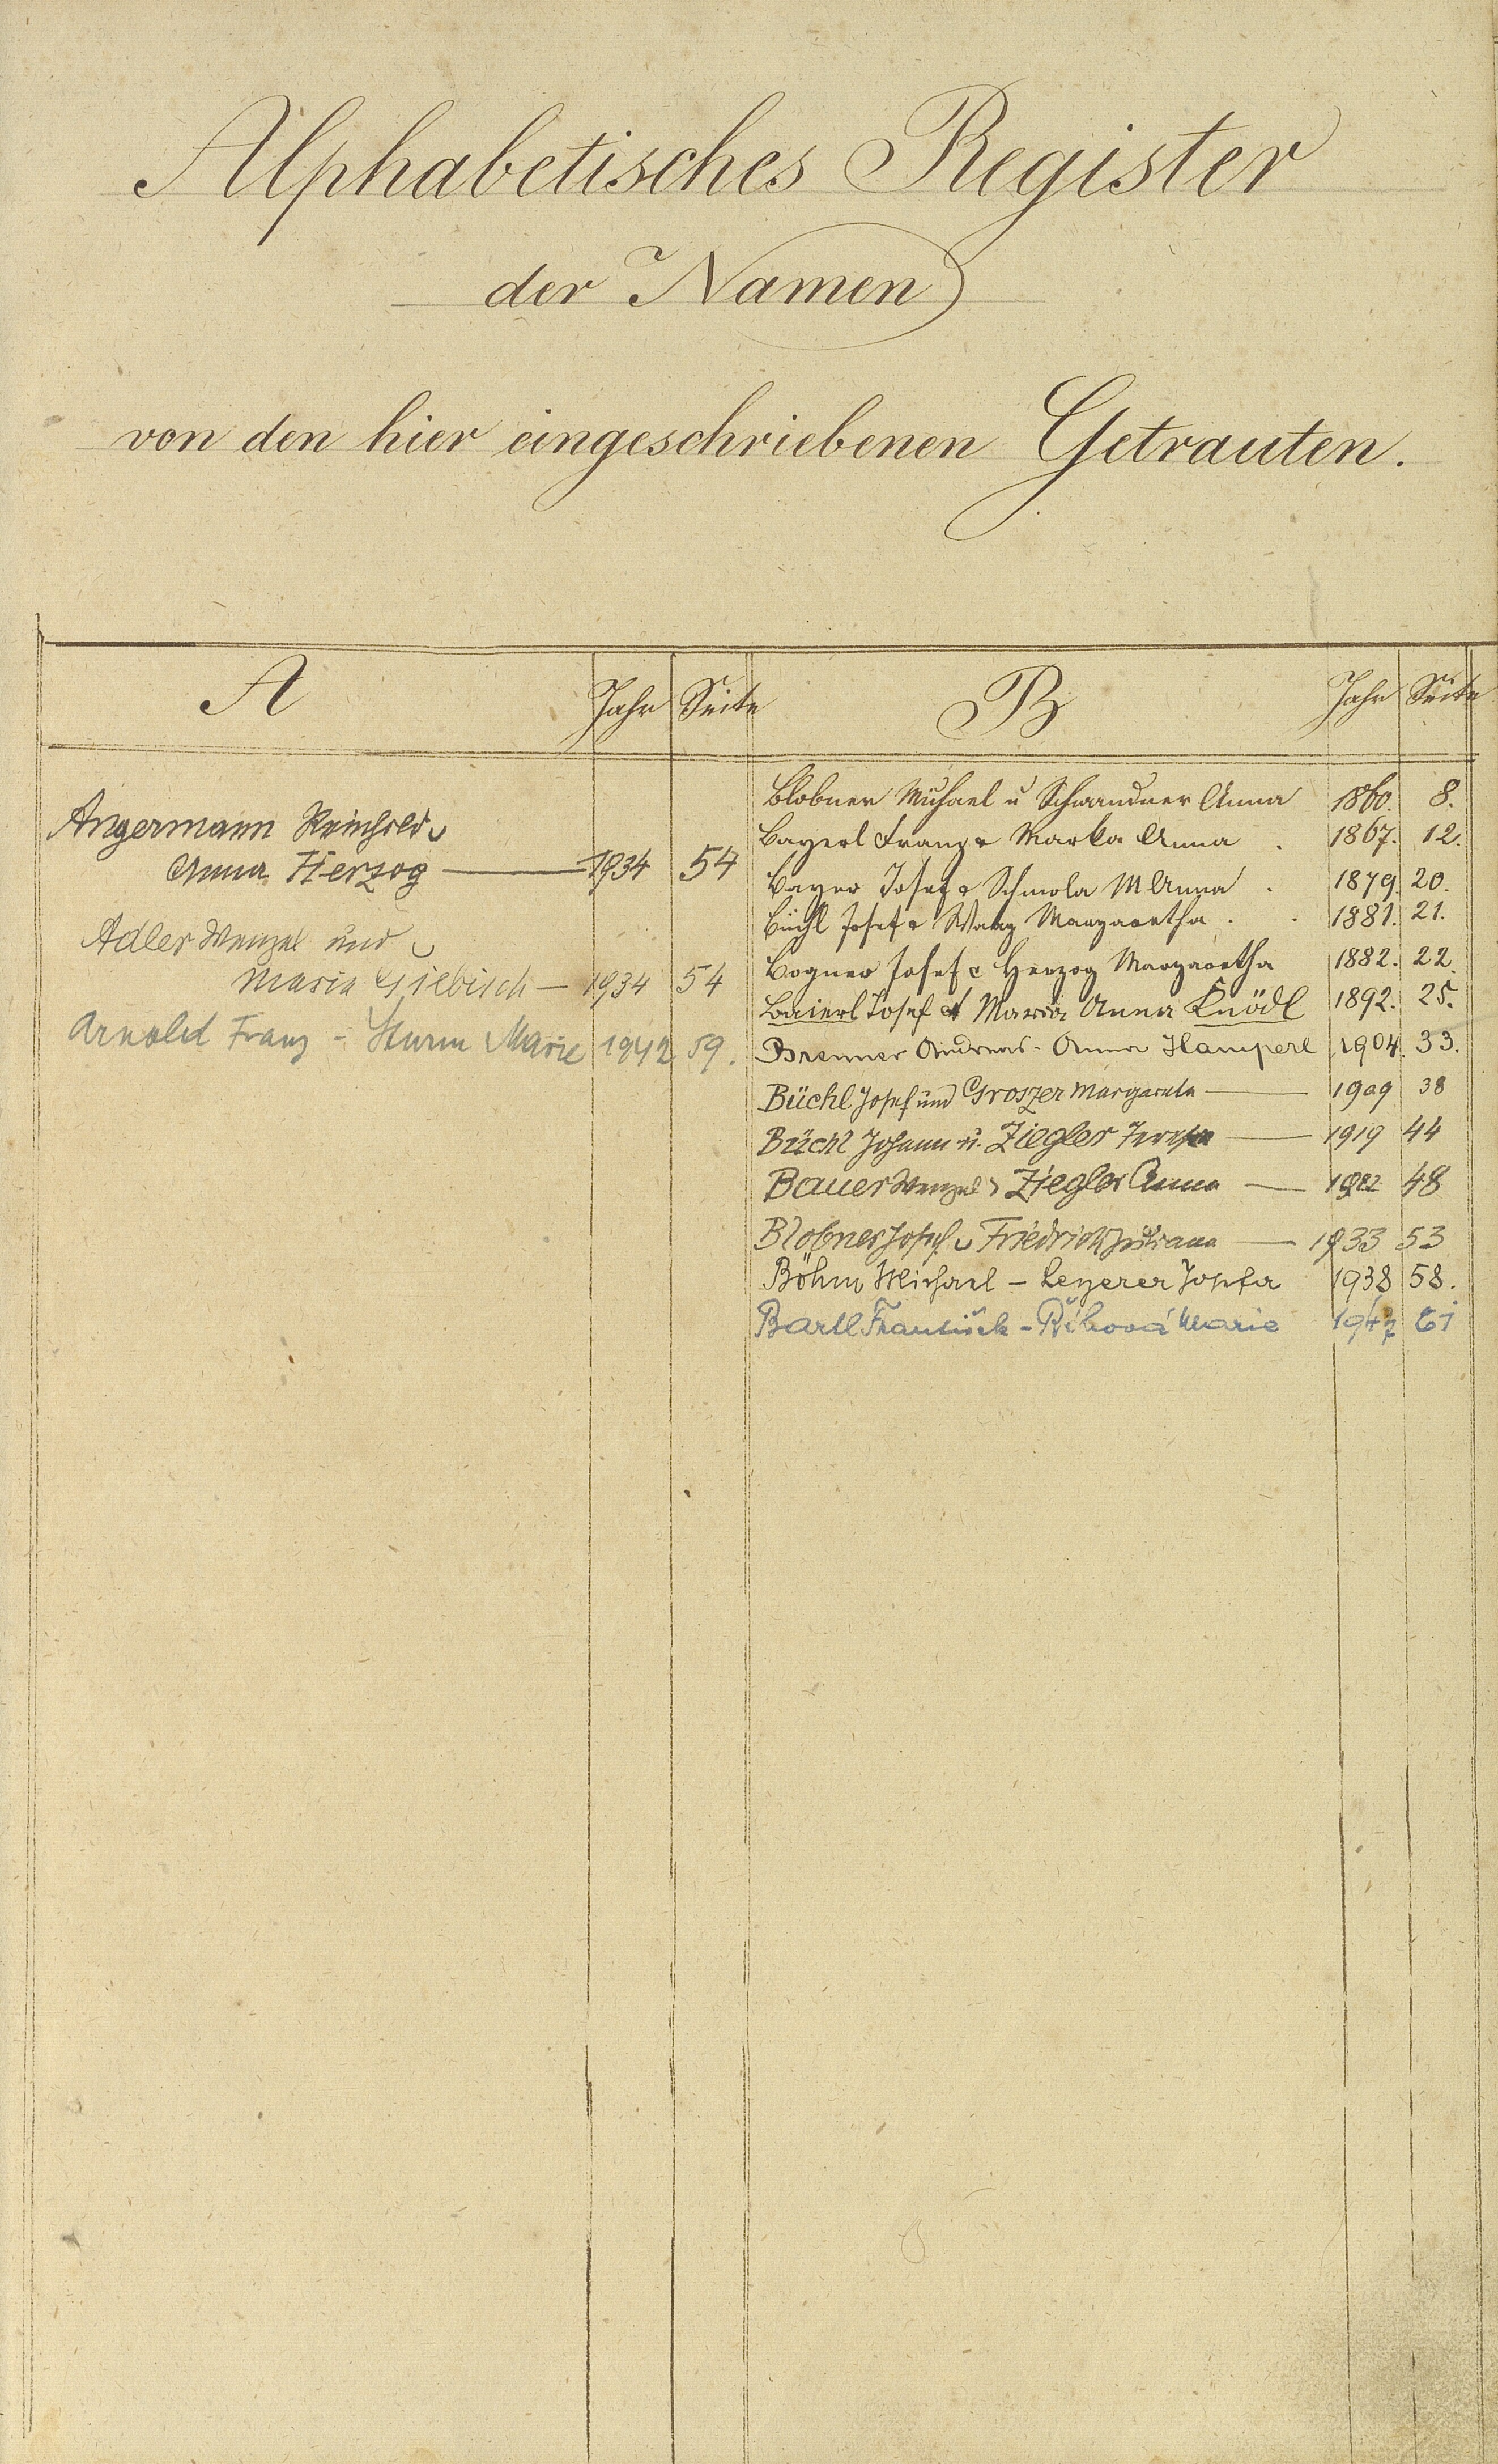 Alphabetisches Register
der Namen
von den hier eingeschriebenen Getrauten.
A Jahr Seite
Angermann Reinhold u
Anna Herzog — 1934 54
Adler Wenzel und
Maria Giebisch — 1934 54
Arnold Franz - Sturm Marie 1942 59.
B Jahr Seite
Blobner Michael u Schwandner Anna 1860. 8.
Bayerl Franz & Marka Anna . 1867. 12.
Bayer Josef & Schmola M Anna . 1879. 20.
Büchl Josef & Margaretha . . 1881. 21.
Bogner Josef & Herzog Margaretha 1882. 22.
Baierl Josef & Maria Anna Knödl 1892. 25.
Brenner Andreas - Anna Hamperl 1904. 33.
Büchl Josef und Groszer Margareta — 1909 38
Büchl Johann u. Ziegler Teresia — 1919 44
Bauer Wenzel Ziegler Anna — 1922 48
Blobner Josef u Friedrich — 1933 53
Böhm Michael - Leyerer Josefa 1938 58.
Bartl František - Říhová Marie 1947 61